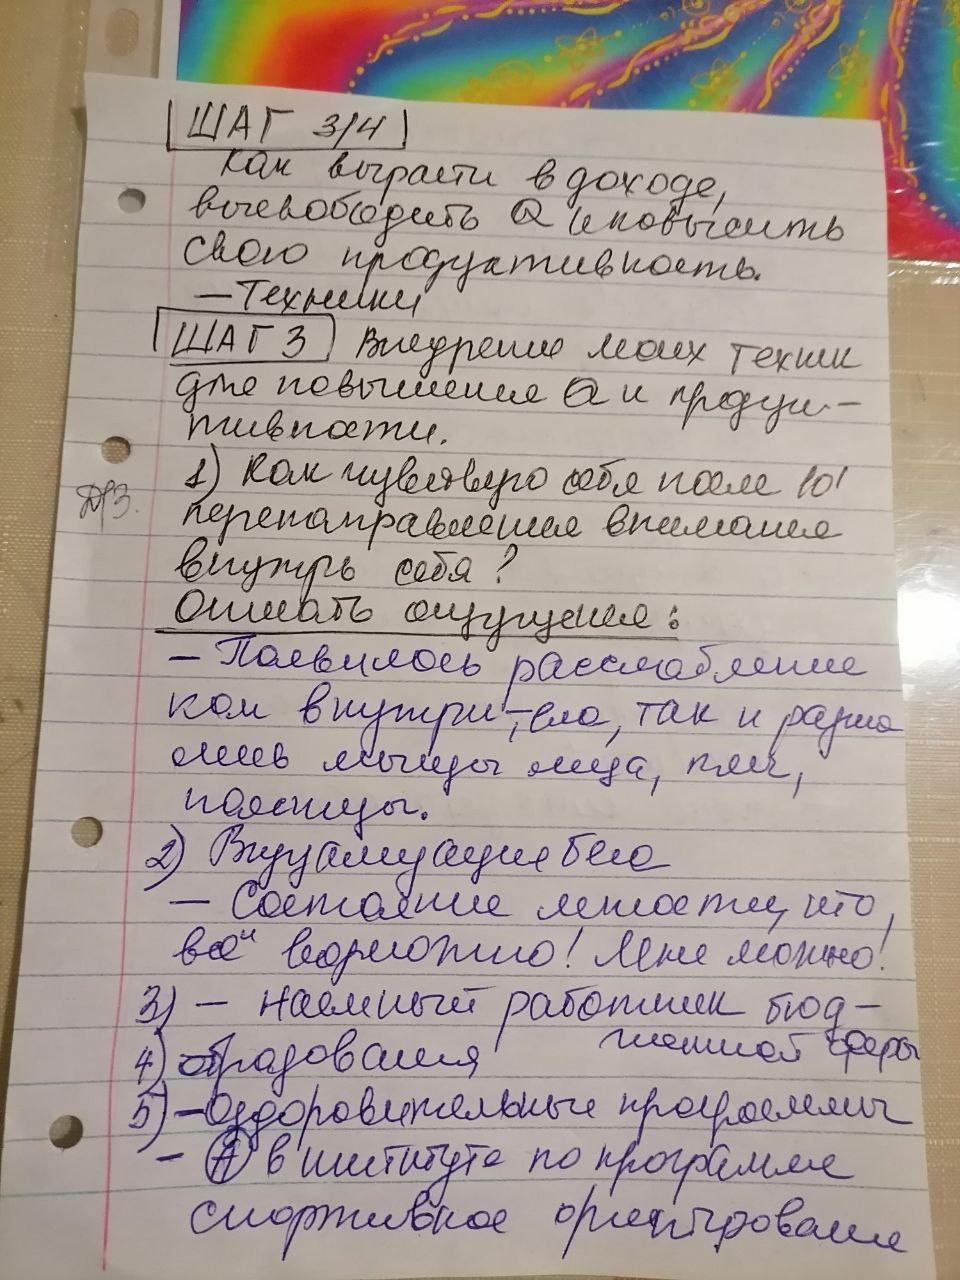 ШАГ 3/4
Как вырасти в доходе,
высвободить Q и повысить
свою продуктивность.
— Техники
ШАГ 3 Внедрение моих техник
для повышения Q и продук-
тивности.
Д/З.
1) Как чувствую себя после 10'
перенаправления внимания
внутрь себя?
Описать ощущения:
— Появилось расслабление
как внутри тела, так и
мышцы лица, плеч,
поясницы.
2) Визуализация бега
— Состояние легкости, что
всё возможно! Мне можно!
3) — наемный работник бюд-
жетной сферы
4) образования
5) — Оздоровительные программы
— Я в институте по программе
спортивное ориентирование